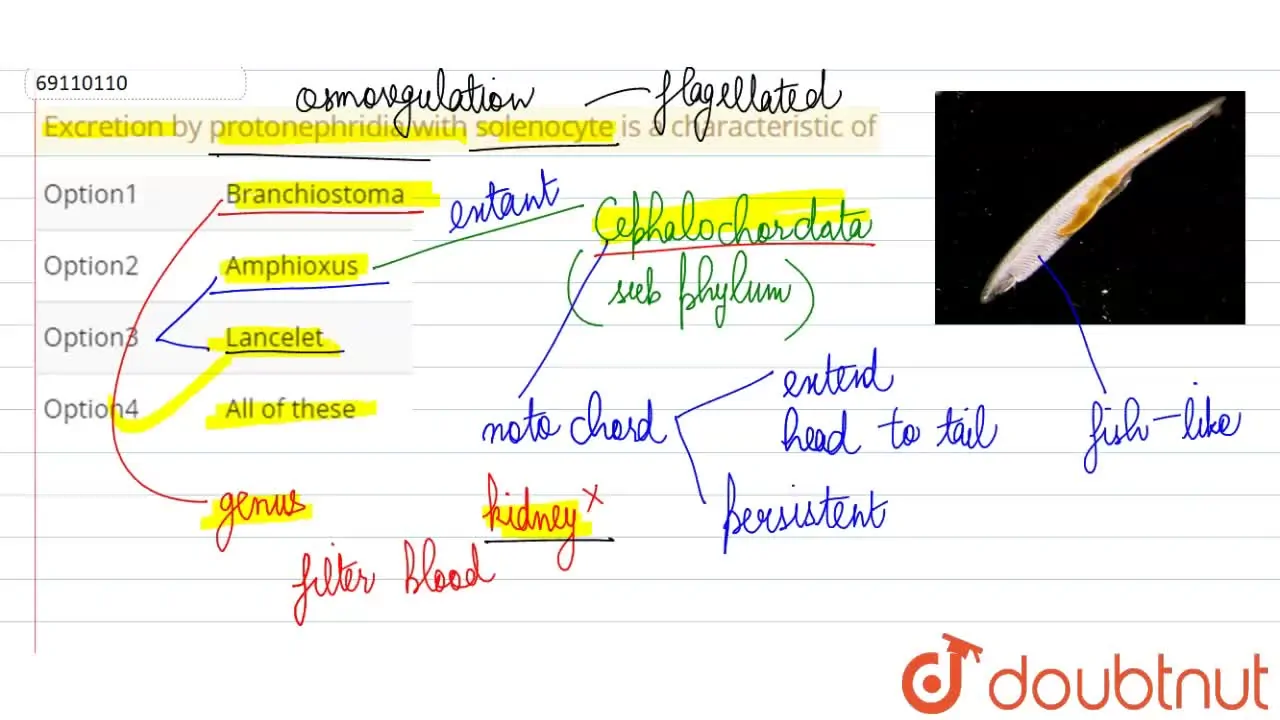 69110110
osmoregulation — flagellated
Excretion by protonephridia with solenocyte is a characteristic of
Option1 Branchiostoma
extant
Cephalochordata
Option2 Amphioxus
(sub phylum)
Option3 Lancelet
extend
Option4 All of these
noto chord
head to tail
fish-like
genus
kidney x
persistent
filter blood
doubtnut